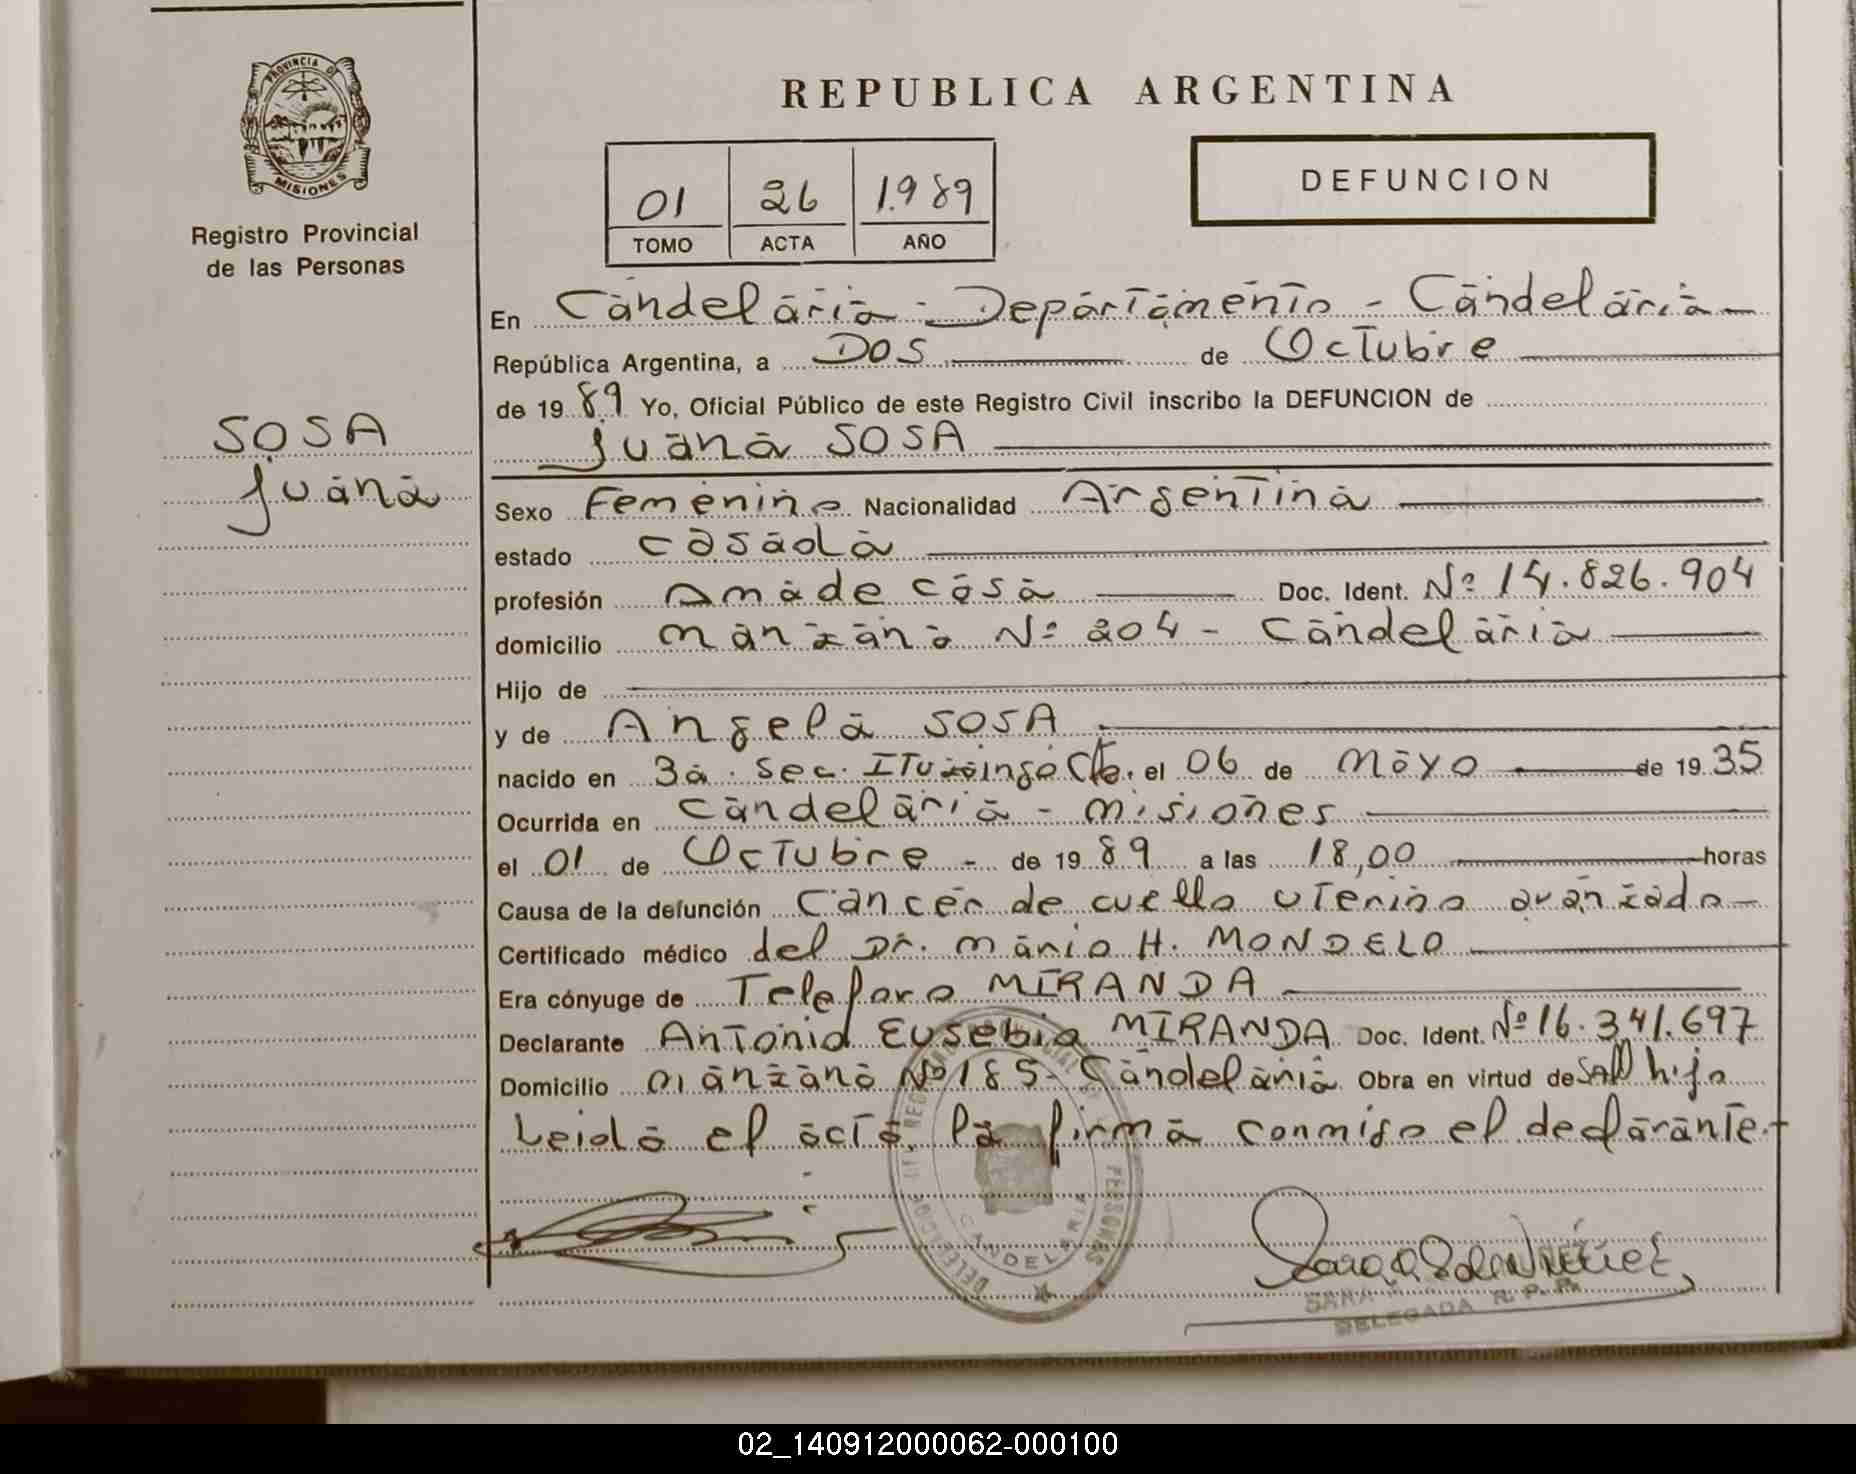 PROVINCIA DE
MISIONES
Registro Provincial
de las Personas
SOSA
Juana
REPUBLICA ARGENTINA
01 26 1.989
TOMO ACTA AÑO
DEFUNCION
En Candelaria - Departamento - Candelaria
República Argentina, a Dos de Octubre
de 1989 Yo, Oficial Público de este Registro Civil inscribo la DEFUNCION de
Juana SOSA
Sexo Femenino Nacionalidad Argentina
estado casada
profesión Ama de casa Doc. Ident. Nº 14.826.904
domicilio manzana Nº 204 - Candelaria
Hijo de
y de Angela SOSA
nacido en 3a. Sec. Ituzaingo Ctes. el 06 de Mayo de 1935
Ocurrida en Candelaria - misiones
el 01 de Octubre - de 1989 a las 18,00 horas
Causa de la defunción Cancer de cuello uterino avanzado -
Certificado médico del Dr. Mario H. MONDELO
Era cónyuge de Telefora MIRANDA
Declarante Antonio Eusebio MIRANDA Doc. Ident. Nº 16.341.697
Domicilio manzana Nº 185 - Candelaria Obra en virtud de ser hijo
Leida el acta, la firma conmigo el declarante.
DELEGACION REGISTRO PROVINCIAL DE LAS PERSONAS
CANDELARIA
SARA
DELEGADA R. P. P.
02_140912000062-000100